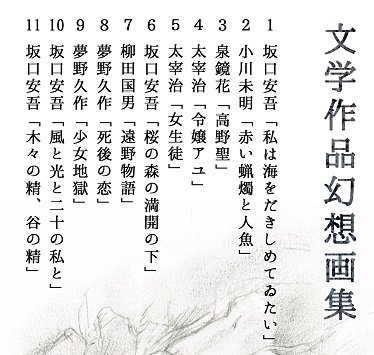 文学作品幻想画集
1 坂口安吾「私は海をだきしめてゐたい」
2 小川未明「赤い蝋燭と人魚」
3 泉鏡花「高野聖」
4 太宰治「令嬢アユ」
5 太宰治「女生徒」
6 坂口安吾「桜の森の満開の下」
7 柳田国男「遠野物語」
8 夢野久作「死後の恋」
9 夢野久作「少女地獄」
10 坂口安吾「風と光と二十の私と」
11 坂口安吾「木々の精、谷の精」